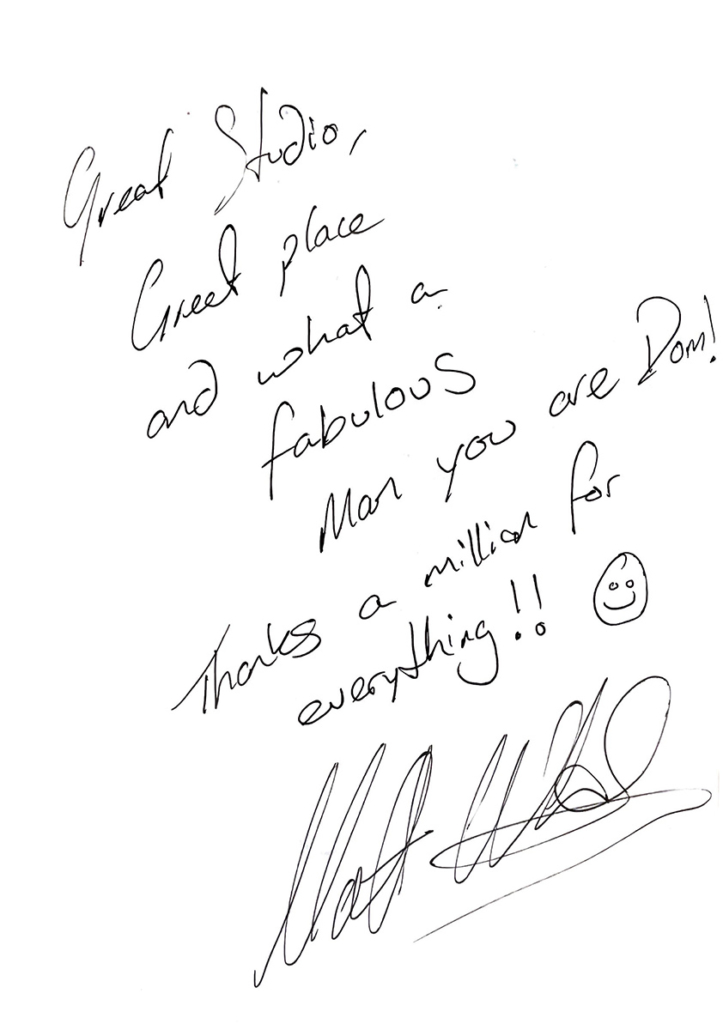 Great Studio,
Great place
and what a
fabulous
Man you are Dom!
Thanks a million for
everything!!
Matt